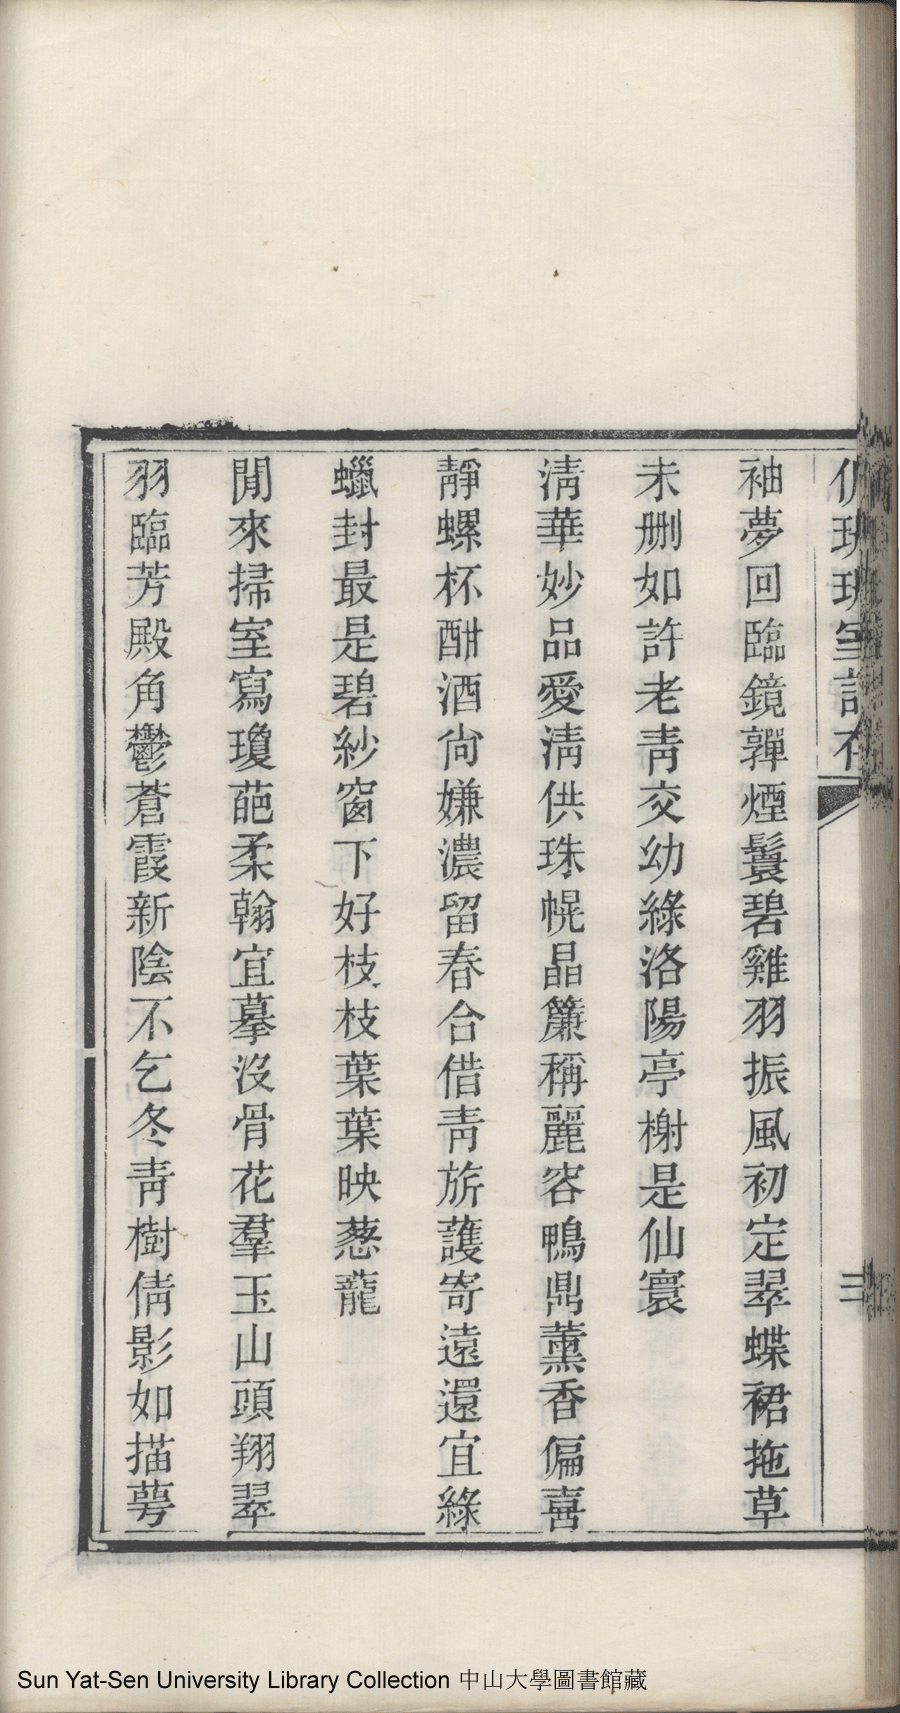 室詩存
三
袖夢回臨鏡嚲煙鬟碧雞羽振風初定翠蝶裙拖草
未删如許老青交幼綠洛陽亭榭是仙寰
清華妙品愛清供珠幌晶簾稱麗容鴨鼎薰香偏喜
靜螺杯酣酒尙嫌濃留春合借青旂護寄遠還宜綠
蠟封最是碧紗窗下好枝枝葉葉映蔥蘢
閒來掃室寫瓊葩柔翰宜摹沒骨花羣玉山頭翔翠
羽臨芳殿角鬱蒼霞新陰不乞冬青樹倩影如描萼
Sun Yat-Sen University Library Collection 中山大學圖書館藏